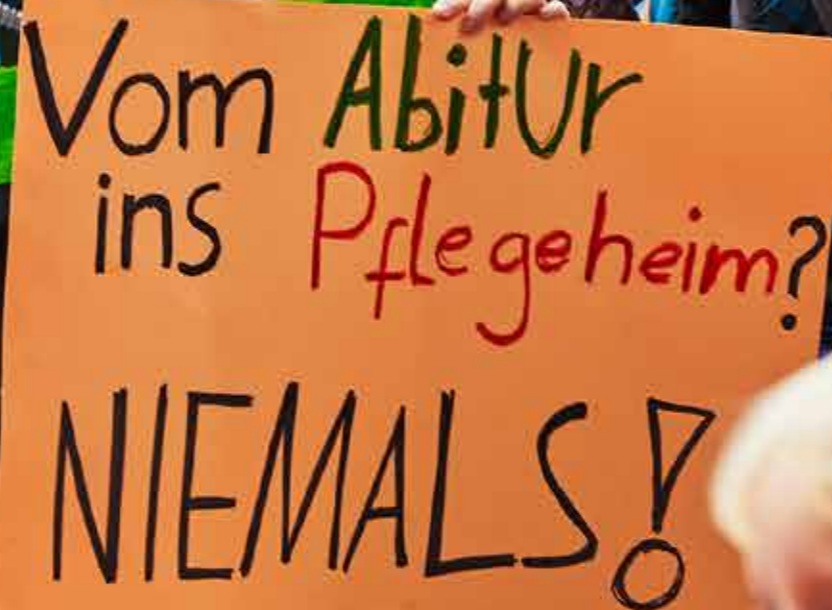 Vom AbitUr
ins Pflegeheim?
NIEMALS!